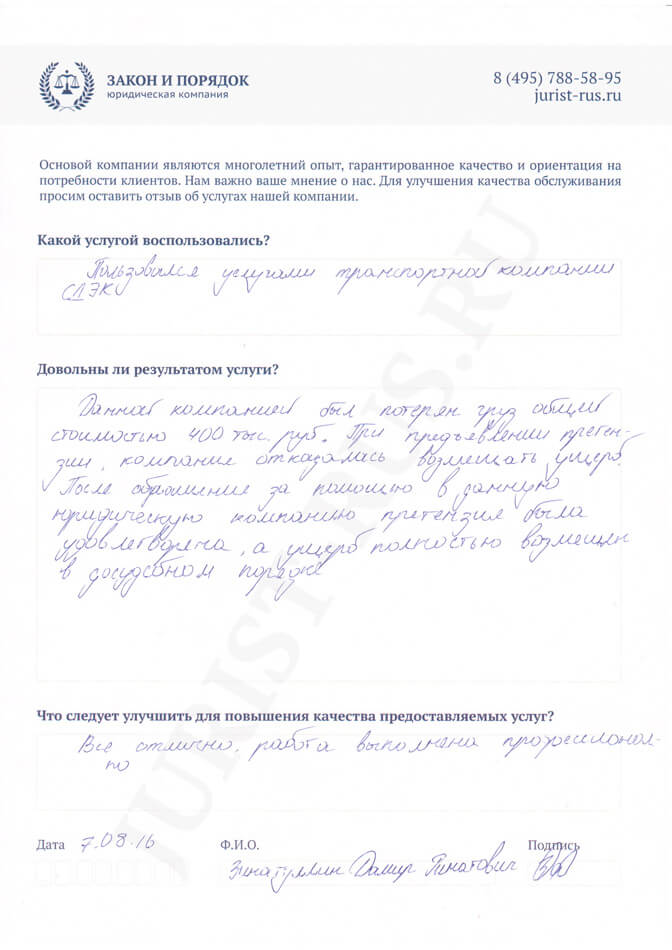 ЗАКОН И ПОРЯДОК
юридическая компания
8 (495) 788-58-95
jurist-rus.ru
Основой компании являются многолетний опыт, гарантированное качество и ориентация на
потребности клиентов. Нам важно ваше мнение о нас. Для улучшения качества обслуживания
просим оставить отзыв об услугах нашей компании.
Какой услугой воспользовались?
Пользовался услугами транспортной компании
СДЭК
Довольны ли результатом услуги?
Данной компанией был потерян груз общей
стоимостью 400 тыс. руб. При предъявлении претен-
зии, компания отказалась возмещать ущерб.
После обращения за помощью в данную
юридическую компанию претензия была
удовлетворена, а ущерб полностью возмещен
в досудебном порядке
Что следует улучшить для повышения качества предоставляемых услуг?
Все отлично, работа выполнена профессионал-
но
Дата 7.08.16 Ф.И.О. Подпись
Зинатуллин Дамир Ринатович
JURIST-RUS.RU